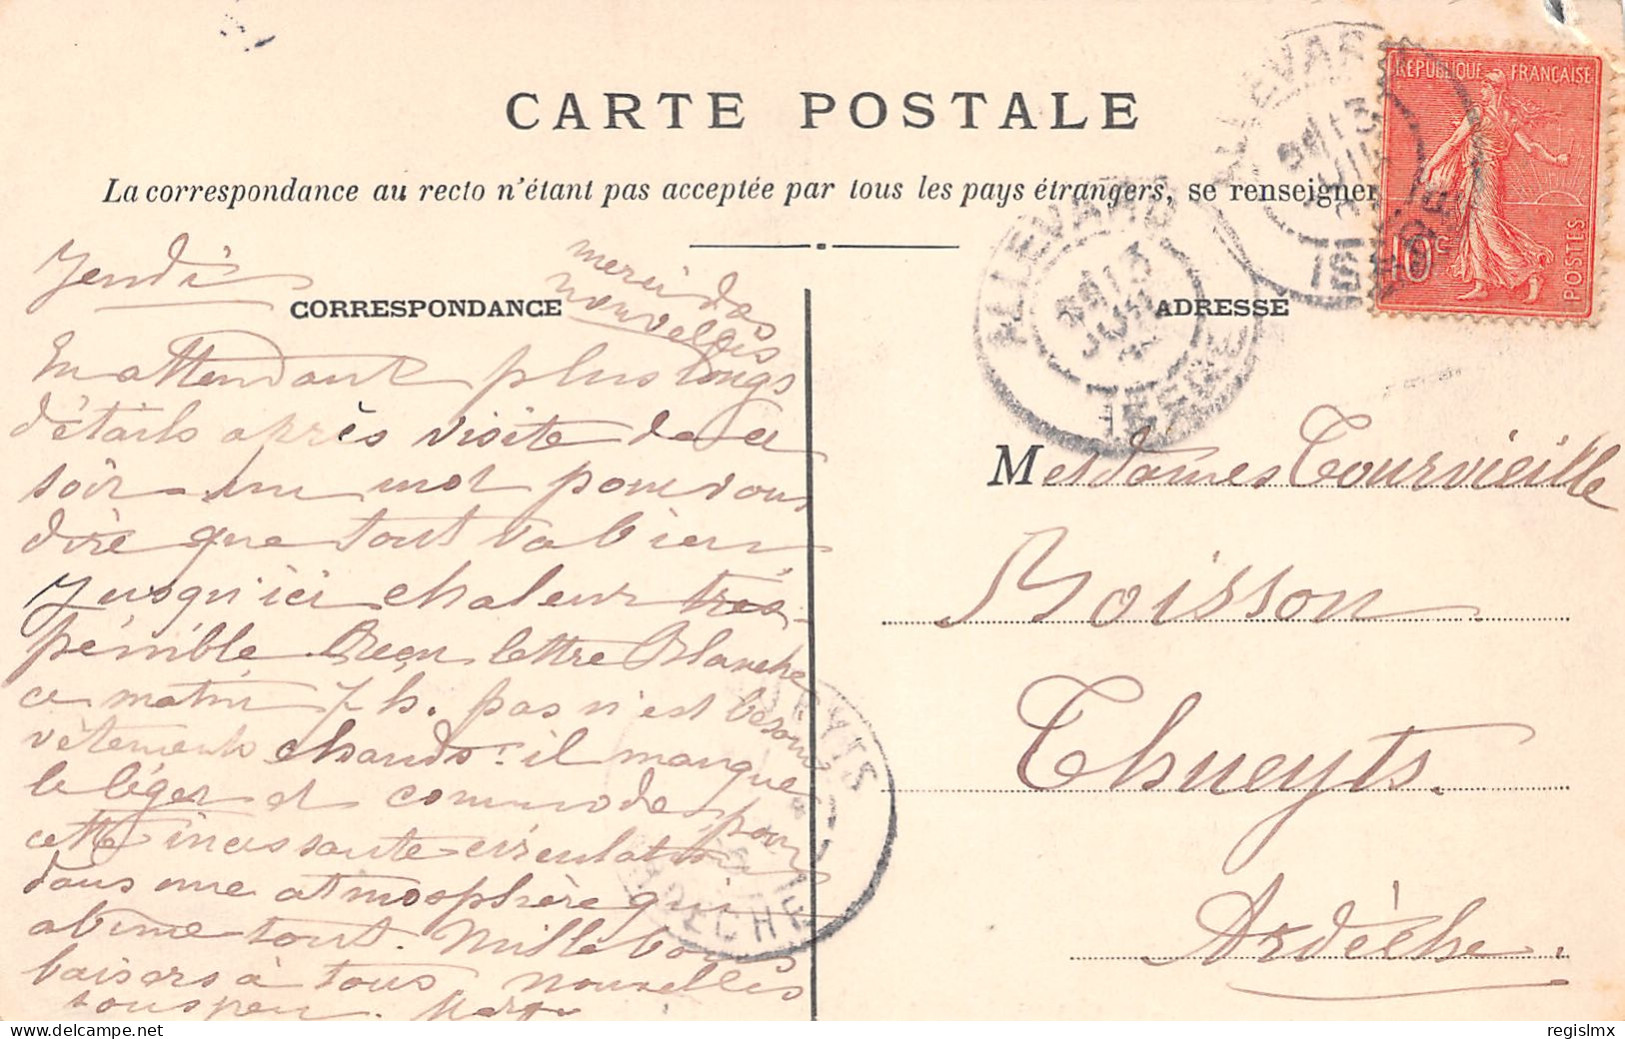 CARTE POSTALE
La correspondance au recto n'étant pas acceptée par tous les pays étrangers, se renseigner
REPUBLIQUE FRANÇAISE
10c
POSTES
ALLEVARD
13
JUIL
ISERE
ALLEVARD
13
JUIL
ISERE
CORRESPONDANCE
ADRESSE
Jeudi
merci des
nouvelles
En attendant plus longs
détails après visite de ce
soir un mot pour vous
dire que tout va bien
Jusqu'ici chaleur très
pénible. Reçu lettre Blanche
ce matin 7 h. pas n'est besoin
vêtements chauds: il manque
le léger et commode pour
cette incessante circulation
dans une atmosphère qui
abime tout. Mille bons
baisers à tous Nouvelles
sous peu.
Mesdames Tourvieille
Moisson
Thueyts.
Ardèche.
THUEYTS
ARDECHE
delcampe.net
regislmx